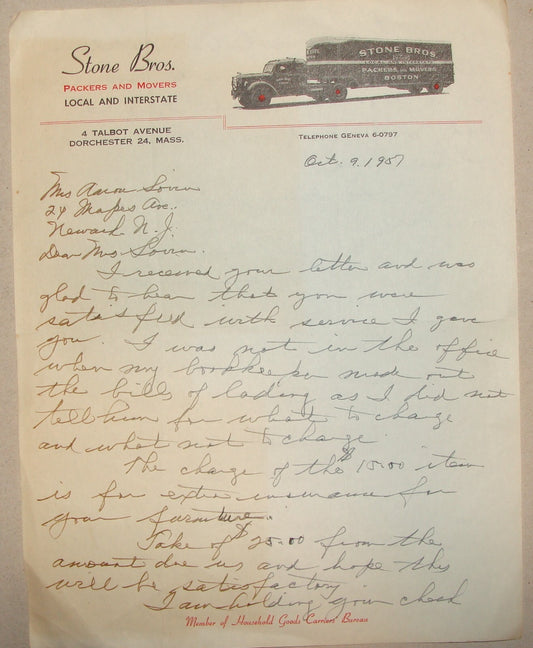 Stone Bros.
PACKERS AND MOVERS
LOCAL AND INTERSTATE
STONE BROS
LOCAL AND INTERSTATE
PACKERS AND MOVERS
BOSTON
4 TALBOT AVENUE
DORCHESTER 24, MASS.
TELEPHONE GENEVA 6-0797
Oct. 9, 1957
Mrs Aaron
24 Mapes Ave.
Newark N. J.
Dear Mrs
I received your letter and was
glad to hear that you were
satisfied with service I gave
you. I was not in the office
when my bookkeeper made out
the bills of lading as I did not
tell him for what to charge
and what not to charge.
The charge of the $15.00 item
is for extra insurance for
your furniture.
Take of $25.00 from the
amount due us and hope this
will be satisfactory
I am holding your check
Member of Household Goods Carriers' Bureau